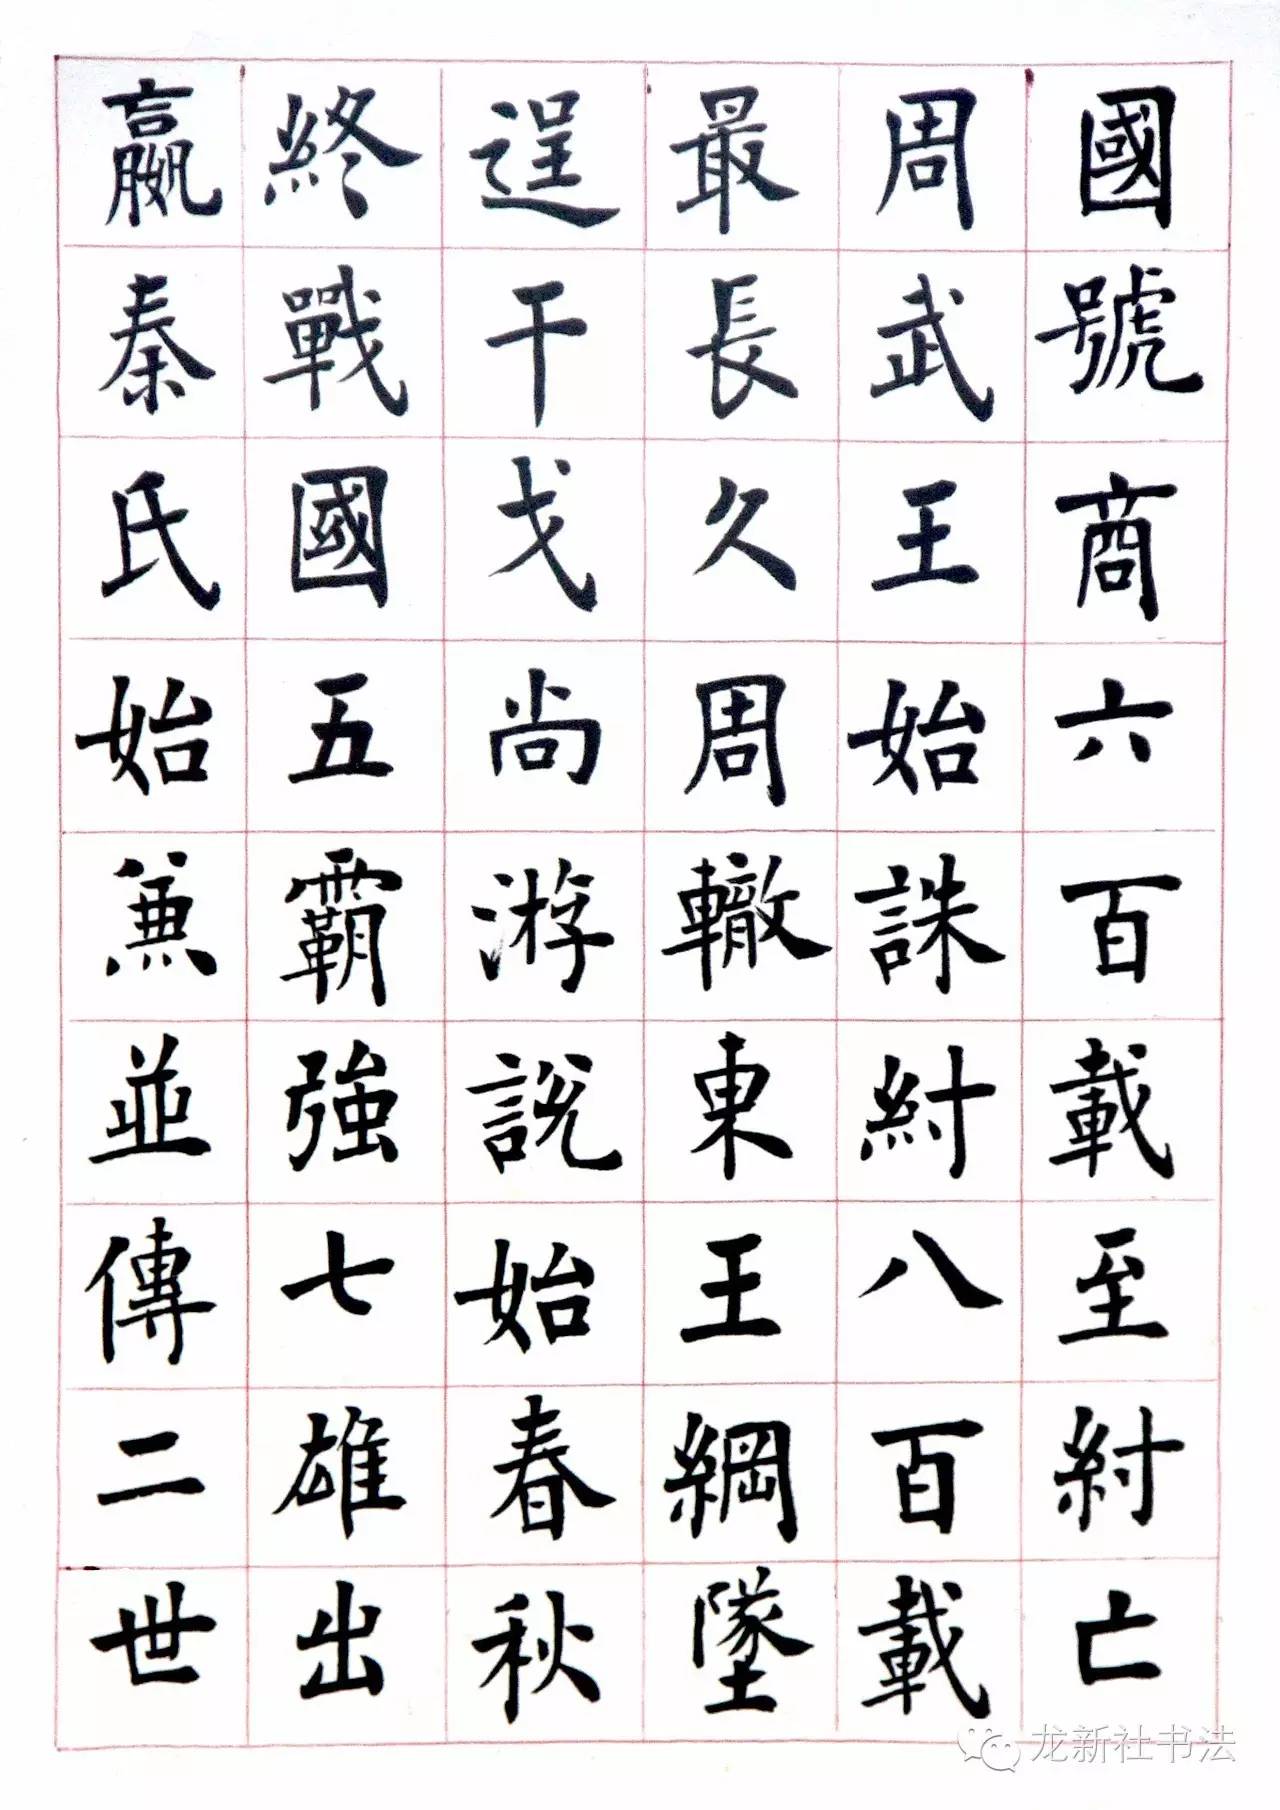 國號商六百載至紂亡
周武王始誅紂八百載
最長久周轍東王綱墜
逞干戈尚游說始春秋
終戰國五霸強七雄出
嬴秦氏始兼並傳二世
龙新社书法